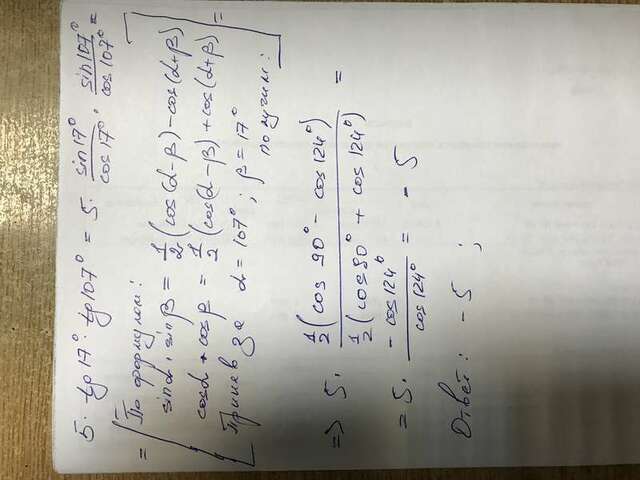 5. tg17° · tg107° = 5 · sin17°/cos17° · sin107°/cos107° =
= [По формулам:
sinα · sinβ = 1/2 (cos(α-β) - cos(α+β)
cosα * cosβ = 1/2 (cos(α-β) + cos(α+β) =
за α = 107° ; β = 17°
получим:]
=> 5 · 1/2 (cos 90° - cos 124°) / 1/2 (cos90° + cos 124°) =
= 5 · -cos124° / cos124° = -5
Ответ: -5 ;